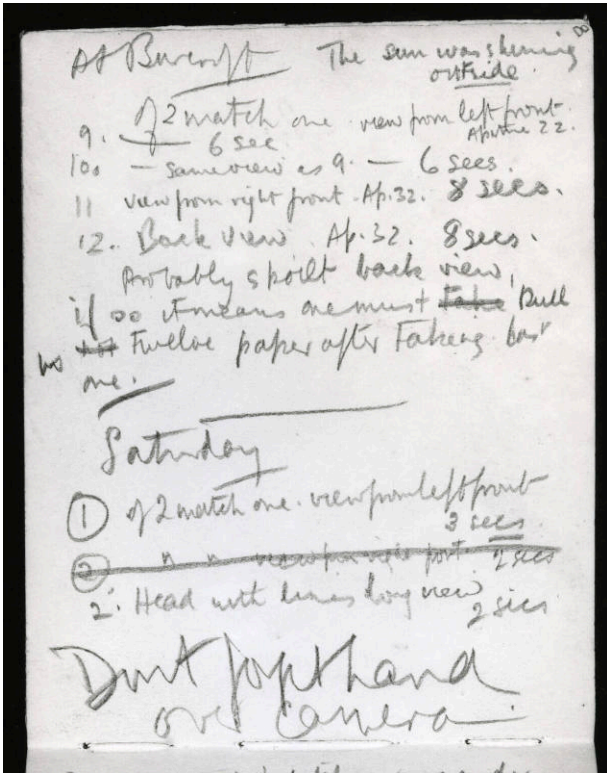 At Burcroft The sun was shining
outside.
of 2 match one. view from left front.
9. 6 sec Aperture 22.
10. — same view as 9. — 6 secs.
11 view from right front. Ap. 32. 8 secs.
12. Back view. Ap. 32. 8 secs.
Probably spoilt back view,
if so it means one must Take Pull
no not Twelve paper after Taking last
one.
Saturday
1 of 2 match one. view from left front
3 secs.
2 " " view from right front. 2 secs
2. Head with long view
2 secs
Dont hand
over camera.